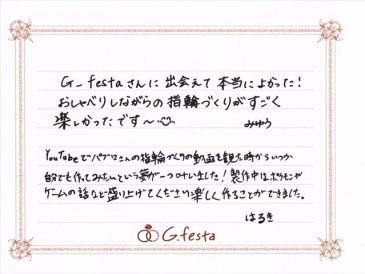 G-festaさんに出会えて本当によかった!
おしゃべりしながらの指輪づくりがすごく
楽しかったです〜
みゆう
YouTubeでパブロさんの指輪づくりの動画を観た時からいつか
自分でも作ってみたいという夢が一つ叶いました!製作中はポケモンや
ゲームの話など盛り上げてくださり楽しく作ることができました。
はるき
G.festa